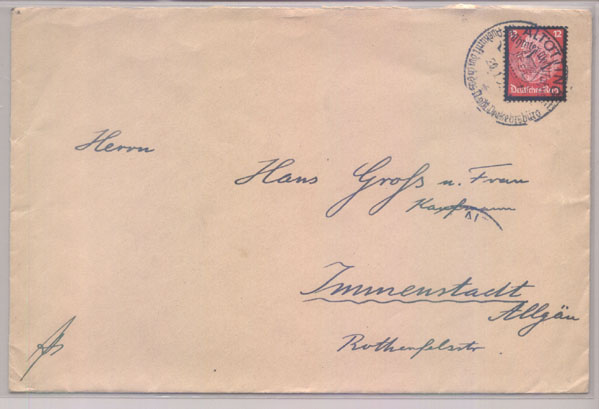 ALTÖTTING
12
Deutsches Reich
Herrn
Hans Groß u. Frau
Kaufmann
Immenstadt
Allgäu
Rothenfelsstr